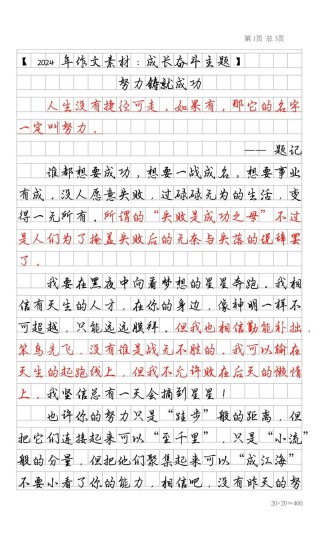 第1页 总3页
【 2024 年作文素材:成长奋斗主题 】
努力铸就成功
人生没有捷径可走,如果有,那它的名字
一定叫努力.
—— 题记
谁都想要成功,想要一战成名,想要事业
有成.没人愿意失败,过碌碌无为的生活,变
得一无所有.所谓的“失败是成功之母”不过
是人们为了掩盖失败后的无奈与失落的说辞罢
了.
我要在黑夜中向着梦想的星星奔跑.我相
信有天生的人才,在你的身边,像神明一样不
可超越,只能远远膜拜.但我也相信勤能补拙,
笨鸟先飞,没有谁是战无不胜的.我可以输在
天生的起跑线上,但我不允许败在后天的懒惰
上.我坚信总有一天会摘到星星!
也许你的努力只是“跬步”般的距离,但
把它们连接起来可以“至千里”,只是“小流”
般的分量,但把他们聚集起来可以“成江海”
不要小看了你的能力,相信吧,没有昨天的努
20×20=400